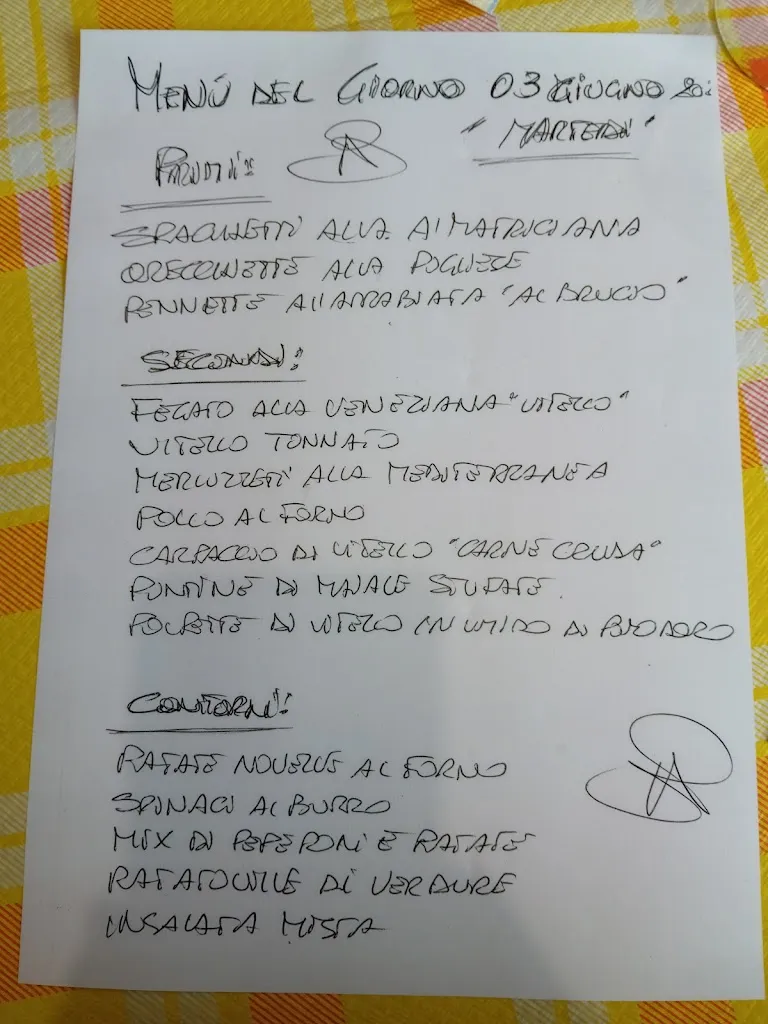 MENÙ DEL GIORNO 03 GIUGNO
"MARTEDÌ"
PRIMI:
SPAGHETTI ALLA AMATRICIANA
ORECCHIETTE ALLA PUGLIESE
PENNETTE ALL'ARRABIATA "AL BRUCIO"
SECONDI:
FEGATO ALLA VENEZIANA "VITELLO"
VITELLO TONNATO
MERLUZZETTI ALLA MEDITERRANEA
POLLO AL FORNO
CARPACCIO DI VITELLO "CARNE CRUDA"
PUNTINE DI MAIALE STUFATE
POLPETTE DI VITELLO IN UMIDO DI POMODORO
CONTORNI:
PATATE NOVELLE AL FORNO
SPINACI AL BURRO
MIX DI PEPERONI E PATATE
RATATOUILLE DI VERDURE
INSALATA MISTA